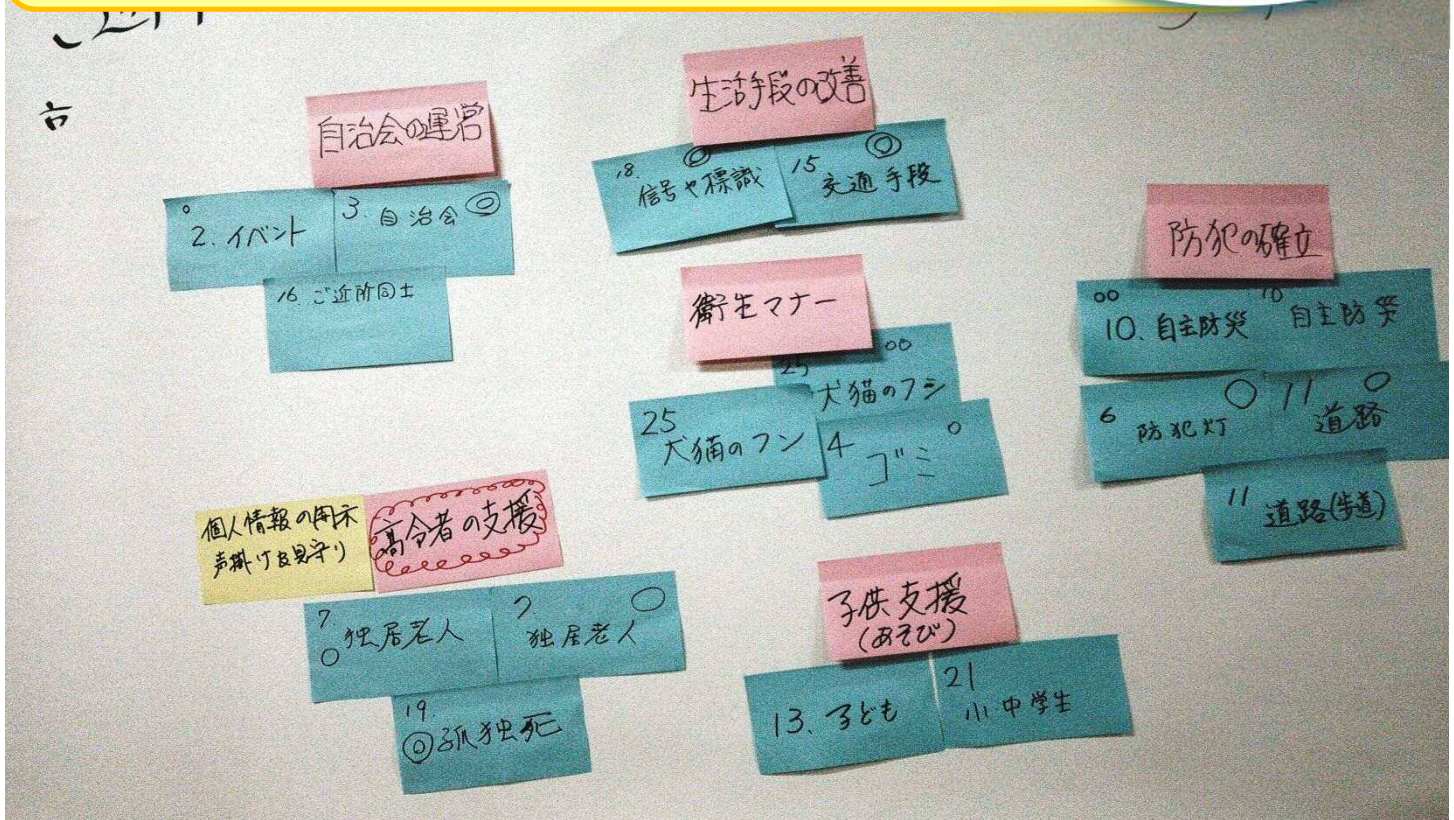 自治会の運営
2. イベント
3. 自治会
16. ご近所同士
生活手段の改善
18. 信号や標識
15 交通手段
衛生マナー
25
犬猫のフン
25
犬猫のフン
4 ゴミ
防犯の確立
10. 自主防災
10 自主防災
6 防犯灯
11 道路
11 道路(歩道)
個人情報の開示
声掛け及見守り
高令者の支援
7 独居老人
7. 独居老人
19.
孤独死
子供支援
(あそび)
13. 子ども
21
小中学生